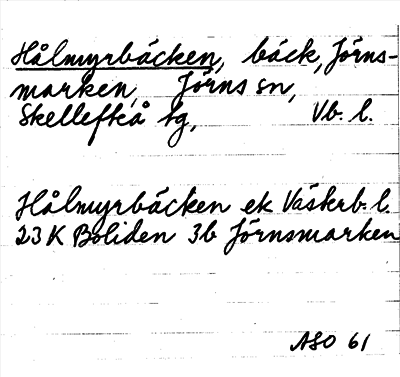 Hålmyrbäcken, bäck, Jörns-
marken, Jörns sn,
Skellefteå tg, Vb. l.
Hålmyrbäcken ek Västerb. l.
23 K Boliden 3b Jörnsmarken
ASO 61